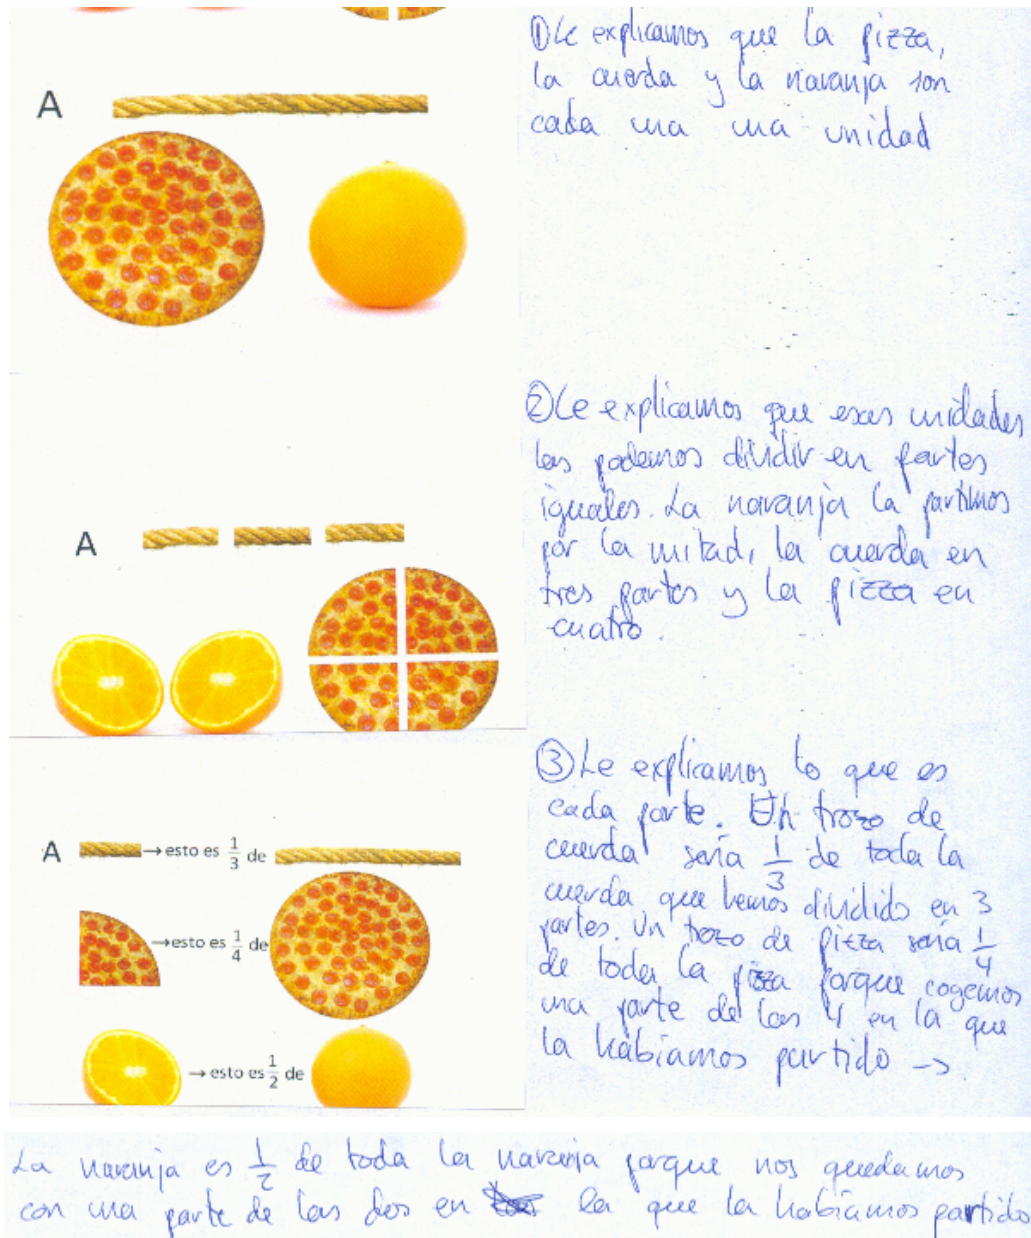 A
① Le explicamos que la pizza,
la cuerda y la naranja son
cada una una unidad
A
② Le explicamos que esas unidades
las podemos dividir en partes
iguales. La naranja la partimos
por la mitad, la cuerda en
tres partes y la pizza en
cuatro.
A
→ esto es 1/3 de
→ esto es 1/4 de
→ esto es 1/2 de
③ Le explicamos lo que es
cada parte. Un trozo de
cuerda sería 1/3 de toda la
cuerda que hemos dividido en 3
partes. Un trozo de pizza sería 1/4
de toda la pizza porque cogemos
una parte de las 4 en la que
la habíamos partido →
La naranja es 1/2 de toda la naranja porque nos quedamos
con una parte de las dos en la que la habíamos partido